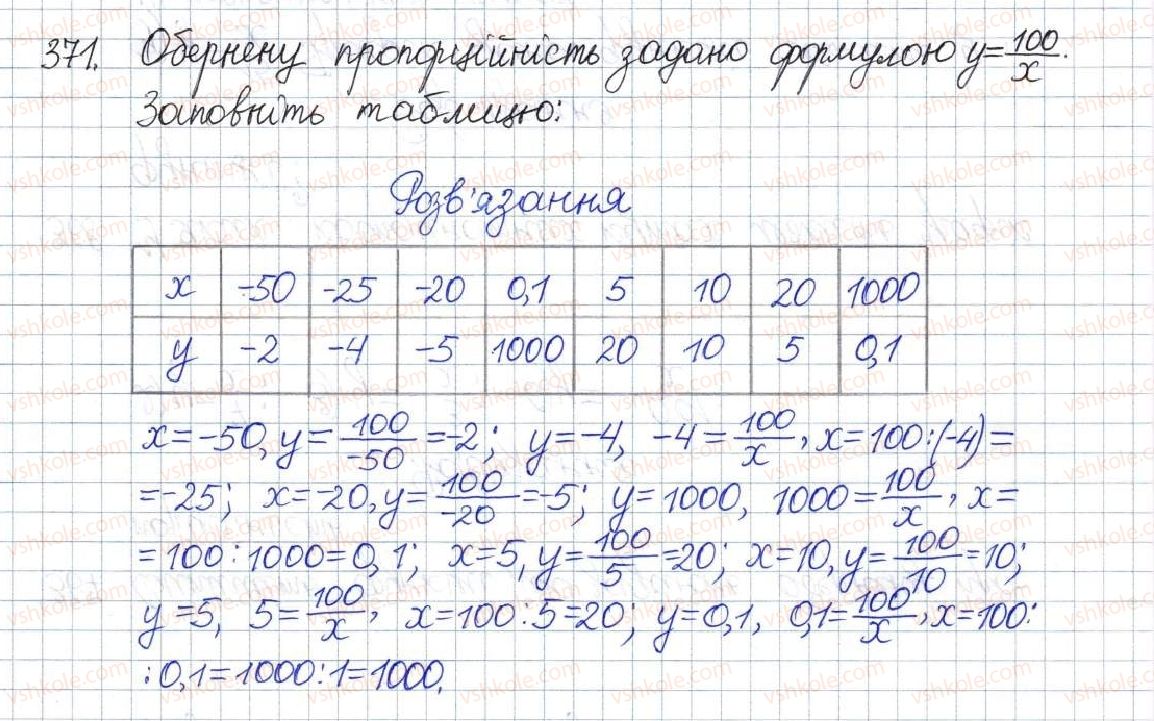 371. Обернену пропорційність задано формулою y=100/x.
Заповніть таблицю:
Розв'язання
x -50 -25 -20 0,1 5 10 20 1000
y -2 -4 -5 1000 20 10 5 0,1
x=-50, y=100/-50=-2; y=-4, -4=100/x, x=100:(-4)=
=-25; x=-20, y=100/-20=-5; y=1000, 1000=100/x, x=
=100:1000=0,1; x=5, y=100/5=20; x=10, y=100/10=10;
y=5, 5=100/x, x=100:5=20; y=0,1, 0,1=100/x, x=100:
:0,1=1000:1=1000.